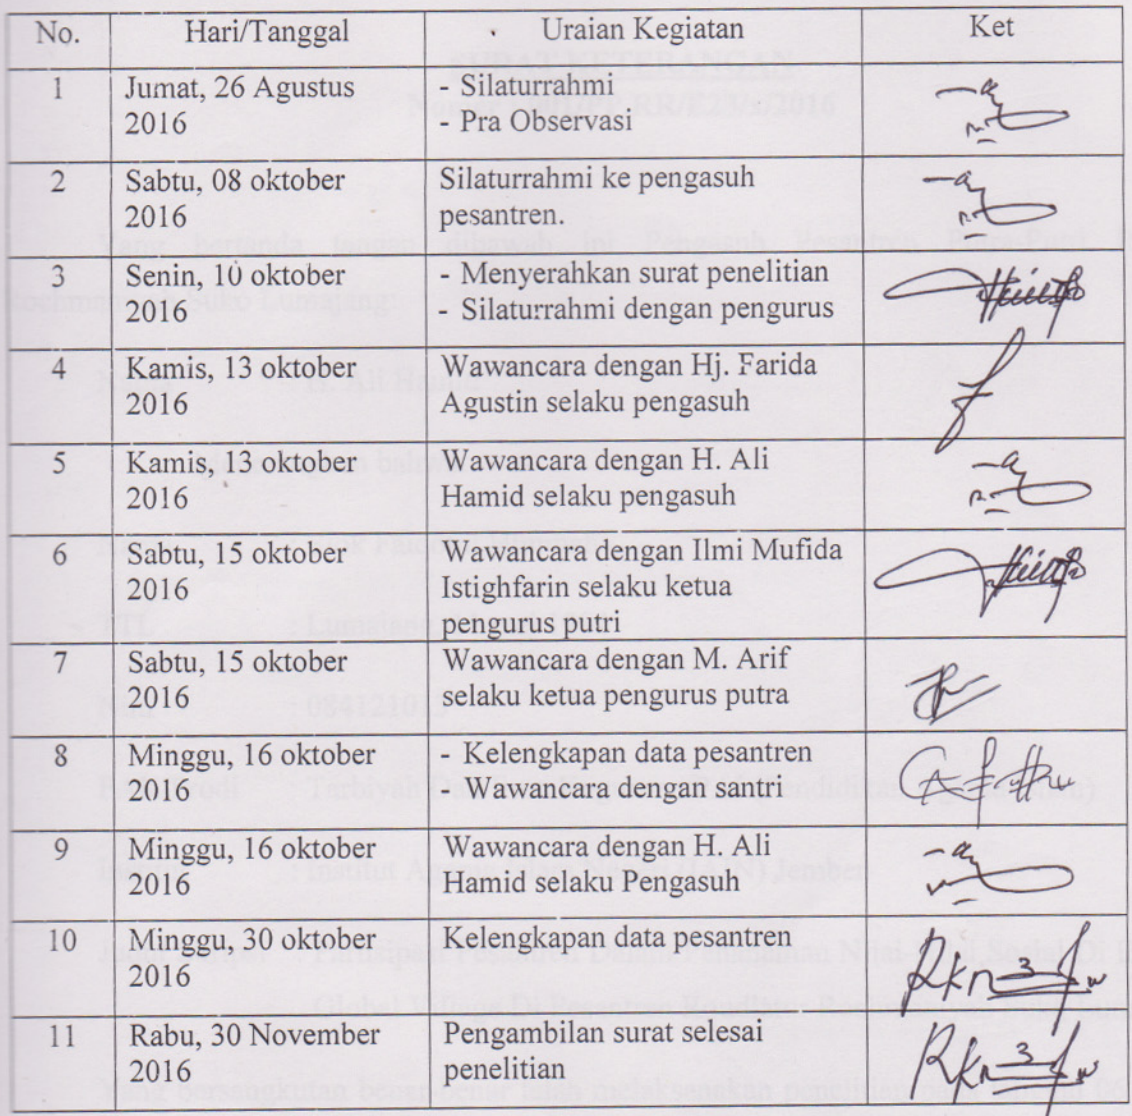 No. Hari/Tanggal Uraian Kegiatan Ket
1 Jumat, 26 Agustus - Silaturrahmi
2016 - Pra Observasi
2 Sabtu, 08 oktober Silaturrahmi ke pengasuh
2016 pesantren.
3 Senin, 10 oktober - Menyerahkan surat penelitian
2016 - Silaturrahmi dengan pengurus
4 Kamis, 13 oktober Wawancara dengan Hj. Farida
2016 Agustin selaku pengasuh
5 Kamis, 13 oktober Wawancara dengan H. Ali
2016 Hamid selaku pengasuh
6 Sabtu, 15 oktober Wawancara dengan Ilmi Mufida
2016 Istighfarin selaku ketua
pengurus putri
7 Sabtu, 15 oktober Wawancara dengan M. Arif
2016 selaku ketua pengurus putra
8 Minggu, 16 oktober - Kelengkapan data pesantren
2016 - Wawancara dengan santri
9 Minggu, 16 oktober Wawancara dengan H. Ali
2016 Hamid selaku Pengasuh
10 Minggu, 30 oktober Kelengkapan data pesantren
2016
11 Rabu, 30 November Pengambilan surat selesai
2016 penelitian